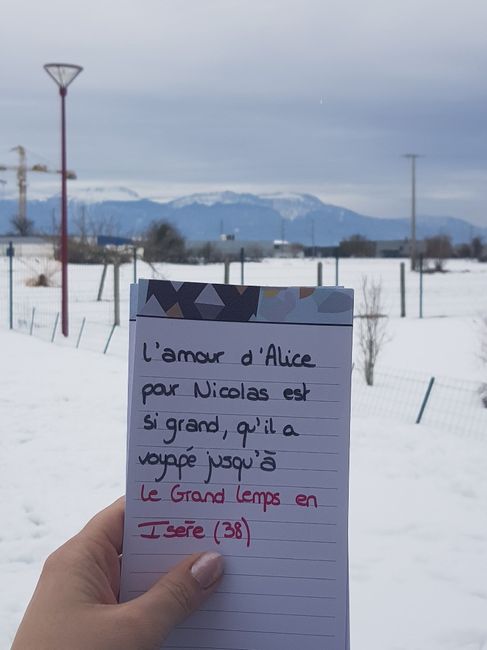 l'amour d'Alice
pour Nicolas est
si grand, qu'il a
voyagé jusqu'à
Le Grand Lemps en
Isère (38)